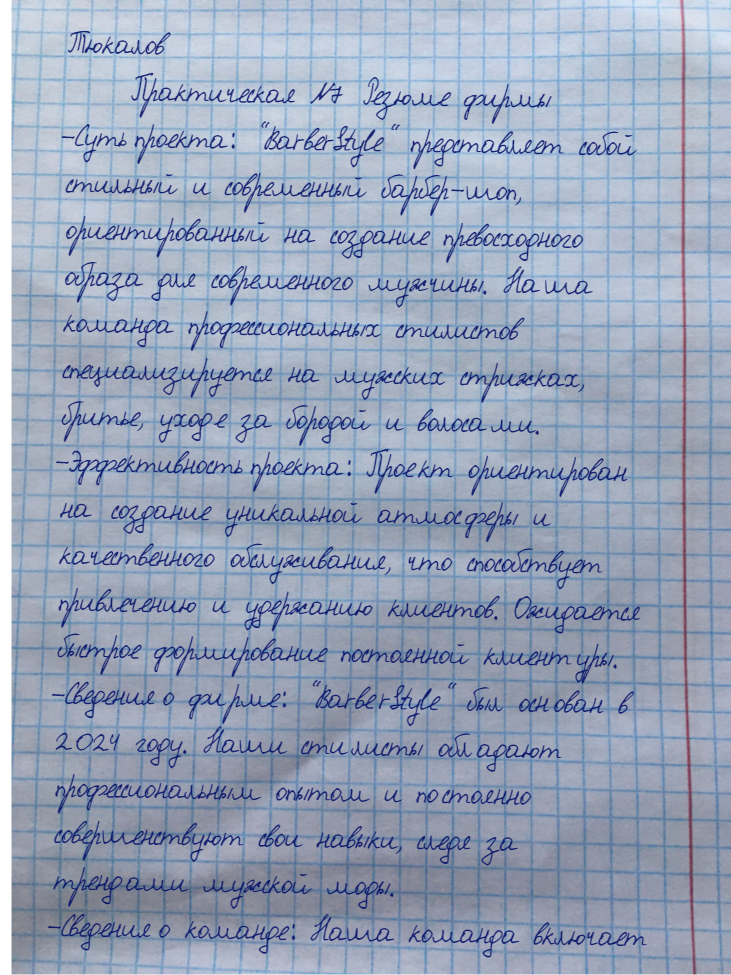 Тюкалов
Практическая №7 Резюме фирмы
-Суть проекта: "BarberStyle" представляет собой
стильный и современный барбер-шоп,
ориентированный на создание превосходного
образа для современного мужчины. Наша
команда профессиональных стилистов
специализируется на мужских стрижках,
бритье, уходе за бородой и волосами.
-Эффективность проекта: Проект ориентирован
на создание уникальной атмосферы и
качественного обслуживания, что способствует
привлечению и удержанию клиентов. Ожидается
быстрое формирование постоянной клиентуры.
-Сведения о фирме: "BarberStyle" был основан в
2024 году. Наши стилисты обладают
профессиональным опытом и постоянно
совершенствуют свои навыки, следя за
трендами мужской моды.
-Сведения о команде: Наша команда включает